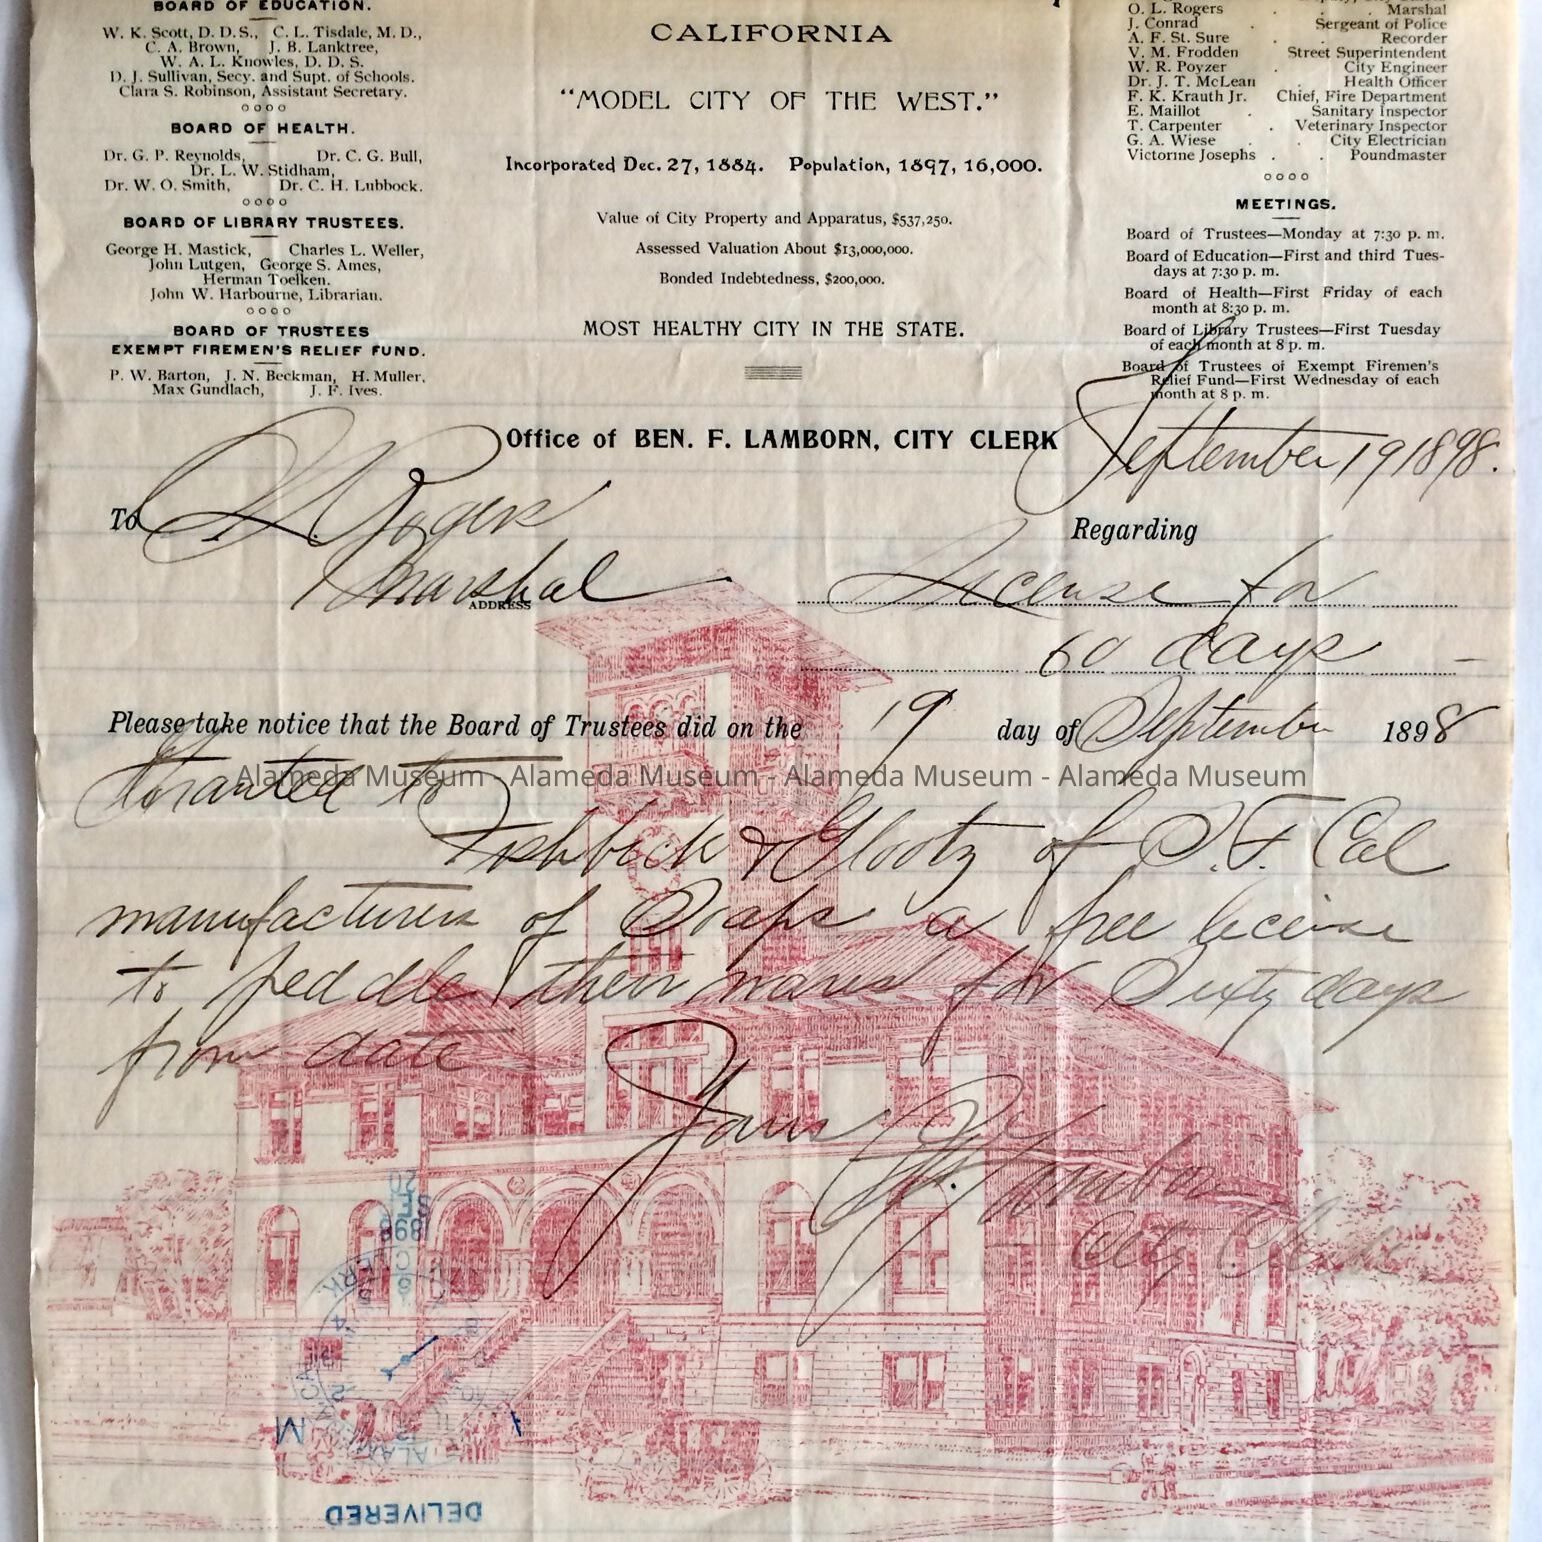 BOARD OF EDUCATION.
W. K. Scott, D. D. S., C. L. Tisdale, M. D.,
C. A. Brown, J. B. Lanktree,
W. A. L. Knowles, D. D. S.
D. J. Sullivan, Secy. and Supt. of Schools.
Clara S. Robinson, Assistant Secretary.
BOARD OF HEALTH.
Dr. G. P. Reynolds, Dr. C. G. Bull,
Dr. L. W. Stidham,
Dr. W. O. Smith, Dr. C. H. Lubbock.
BOARD OF LIBRARY TRUSTEES.
George H. Mastick, Charles L. Weller,
John Lutgen, George S. Ames,
Herman Toelken.
John W. Harbourne, Librarian.
BOARD OF TRUSTEES
EXEMPT FIREMEN'S RELIEF FUND.
P. W. Barton, J. N. Beckman, H. Muller,
Max Gundlach, J. F. Ives.
CALIFORNIA
"MODEL CITY OF THE WEST."
Incorporated Dec. 27, 1884. Population, 1897, 16,000.
Value of City Property and Apparatus, $537,250.
Assessed Valuation About $13,000,000.
Bonded Indebtedness, $200,000.
MOST HEALTHY CITY IN THE STATE.
O. L. Rogers . . Marshal
J. Conrad . Sergeant of Police
A. F. St. Sure . . Recorder
V. M. Frodden Street Superintendent
W. R. Poyzer . City Engineer
Dr. J. T. McLean Health Officer
F. K. Krauth Jr. Chief, Fire Department
E. Maillot . Sanitary Inspector
T. Carpenter . Veterinary Inspector
G. A. Wiese . . City Electrician
Victorine Josephs . . Poundmaster
MEETINGS.
Board of Trustees—Monday at 7:30 p. m.
Board of Education—First and third Tues-
days at 7:30 p. m.
Board of Health—First Friday of each
month at 8:30 p. m.
Board of Library Trustees—First Tuesday
of each month at 8 p. m.
Board of Trustees of Exempt Firemen's
Relief Fund—First Wednesday of each
month at 8 p. m.
Office of BEN. F. LAMBORN, CITY CLERK
September 19 1898.
To O L Rogers
Marshal
ADDRESS
Regarding
License for
60 days
Please take notice that the Board of Trustees did on the 19 day of September 1898
Granted to
Alameda Museum - Alameda Museum - Alameda Museum - Alameda Museum
Fishbeck & Glootz of S.F. Cal
manufacturers of Soaps a free license
to peddle their wares for Sixty days
from date
Yours
B. F. Lamborn
City Clerk
SEP
20
1898
DELIVERED